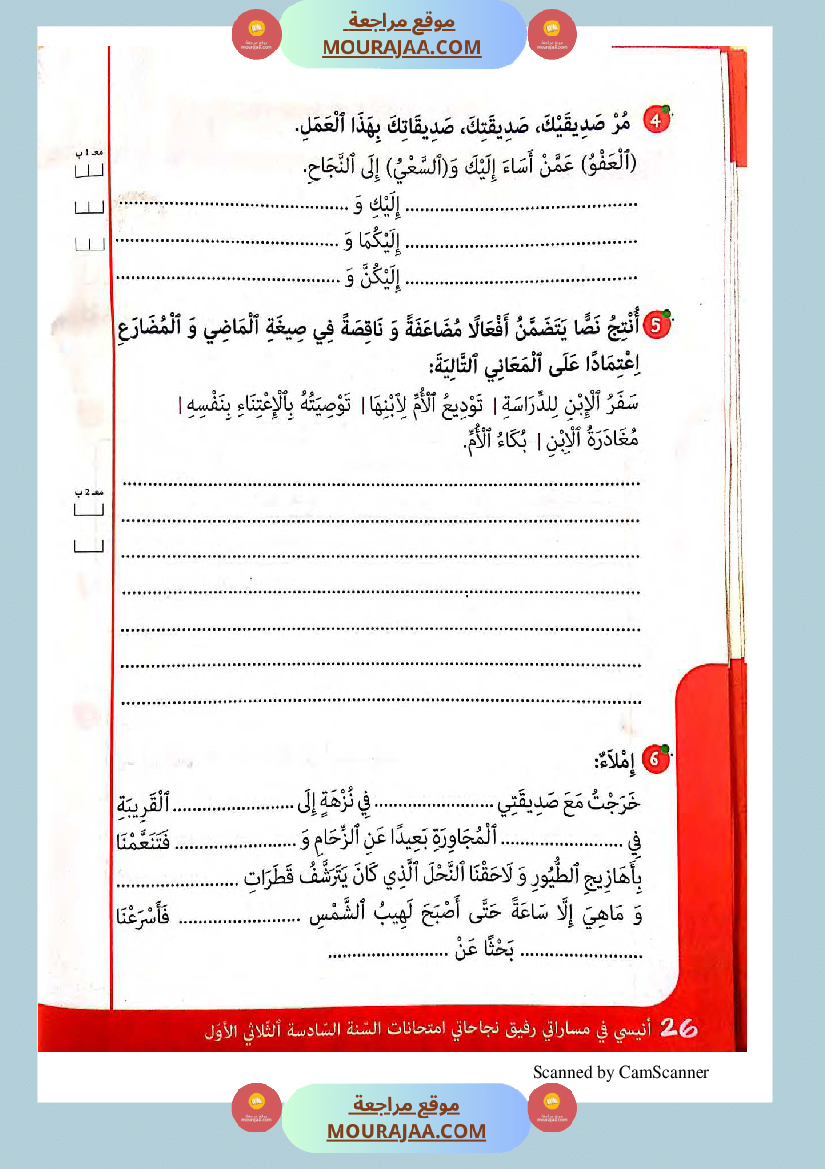 موقع مراجعة
MOURAJAA.COM
4 مُرْ صَدِيقَيْكَ، صَدِيقَتِكَ، صَدِيقَاتِكَ بِهَذَا ٱلْعَمَلِ.
مع 1 ب
(ٱلْعَفْوُ) عَمَّنْ أَسَاءَ إِلَيْكَ وَ(ٱلسَّعْيُ) إِلَى ٱلنَّجَاحِ.
.......... إِلَيْكِ وَ ..........
.......... إِلَيْكُمَا وَ ..........
.......... إِلَيْكُنَّ وَ ..........
5 أُنْتِجُ نَصًّا يَتَضَمَّنُ أَفْعَالًا مُضَاعَفَةً وَ نَاقِصَةً فِي صِيغَةِ ٱلْمَاضِي وَ ٱلْمُضَارَعِ
اِعْتِمَادًا عَلَى ٱلْمَعَانِي ٱلتَّالِيَةَ:
سَفَرُ ٱلْإِبْنِ لِلدِّرَاسَةِ | تَوْدِيعُ ٱلْأُمِّ لِٱبْنِهَا | تَوْصِيَتُهُ بِٱلْإِعْتِنَاءِ بِنَفْسِهِ |
مُغَادَرَةُ ٱلْاِبْنِ | بُكَاءُ ٱلْأُمِّ.
مع 2 ب
6 إِمْلَاَءٌ:
خَرَجْتُ مَعَ صَدِيقَتِي .......... فِي نُزْهَةٍ إِلَى .......... ٱلْقَرِيبَةِ
فِي .......... ٱلْمُجَاوِرَةِ بَعِيدًا عَنِ ٱلزِّحَامِ وَ .......... فَتَنَعَّمْنَا
بِأَهَازِيجِ ٱلطُّيُورِ وَ لَاحَقْنَا ٱلنَّحْلَ ٱلَّذِي كَانَ يَتَرَشَّفُ قَطَرَاتِ ..........
وَ مَاهِيَ إِلَّا سَاعَةً حَتَّى أَصْبَحَ لَهِيبُ ٱلشَّمْسِ .......... فَأَسْرَعْنَا
.......... بَحْثًا عَنْ ..........
26 أنيسي في مساراتي رفيق نجاحاتي امتحانات السّنة السّادسة ٱلثّلاثي الأوّل
Scanned by CamScanner
موقع مراجعة
MOURAJAA.COM